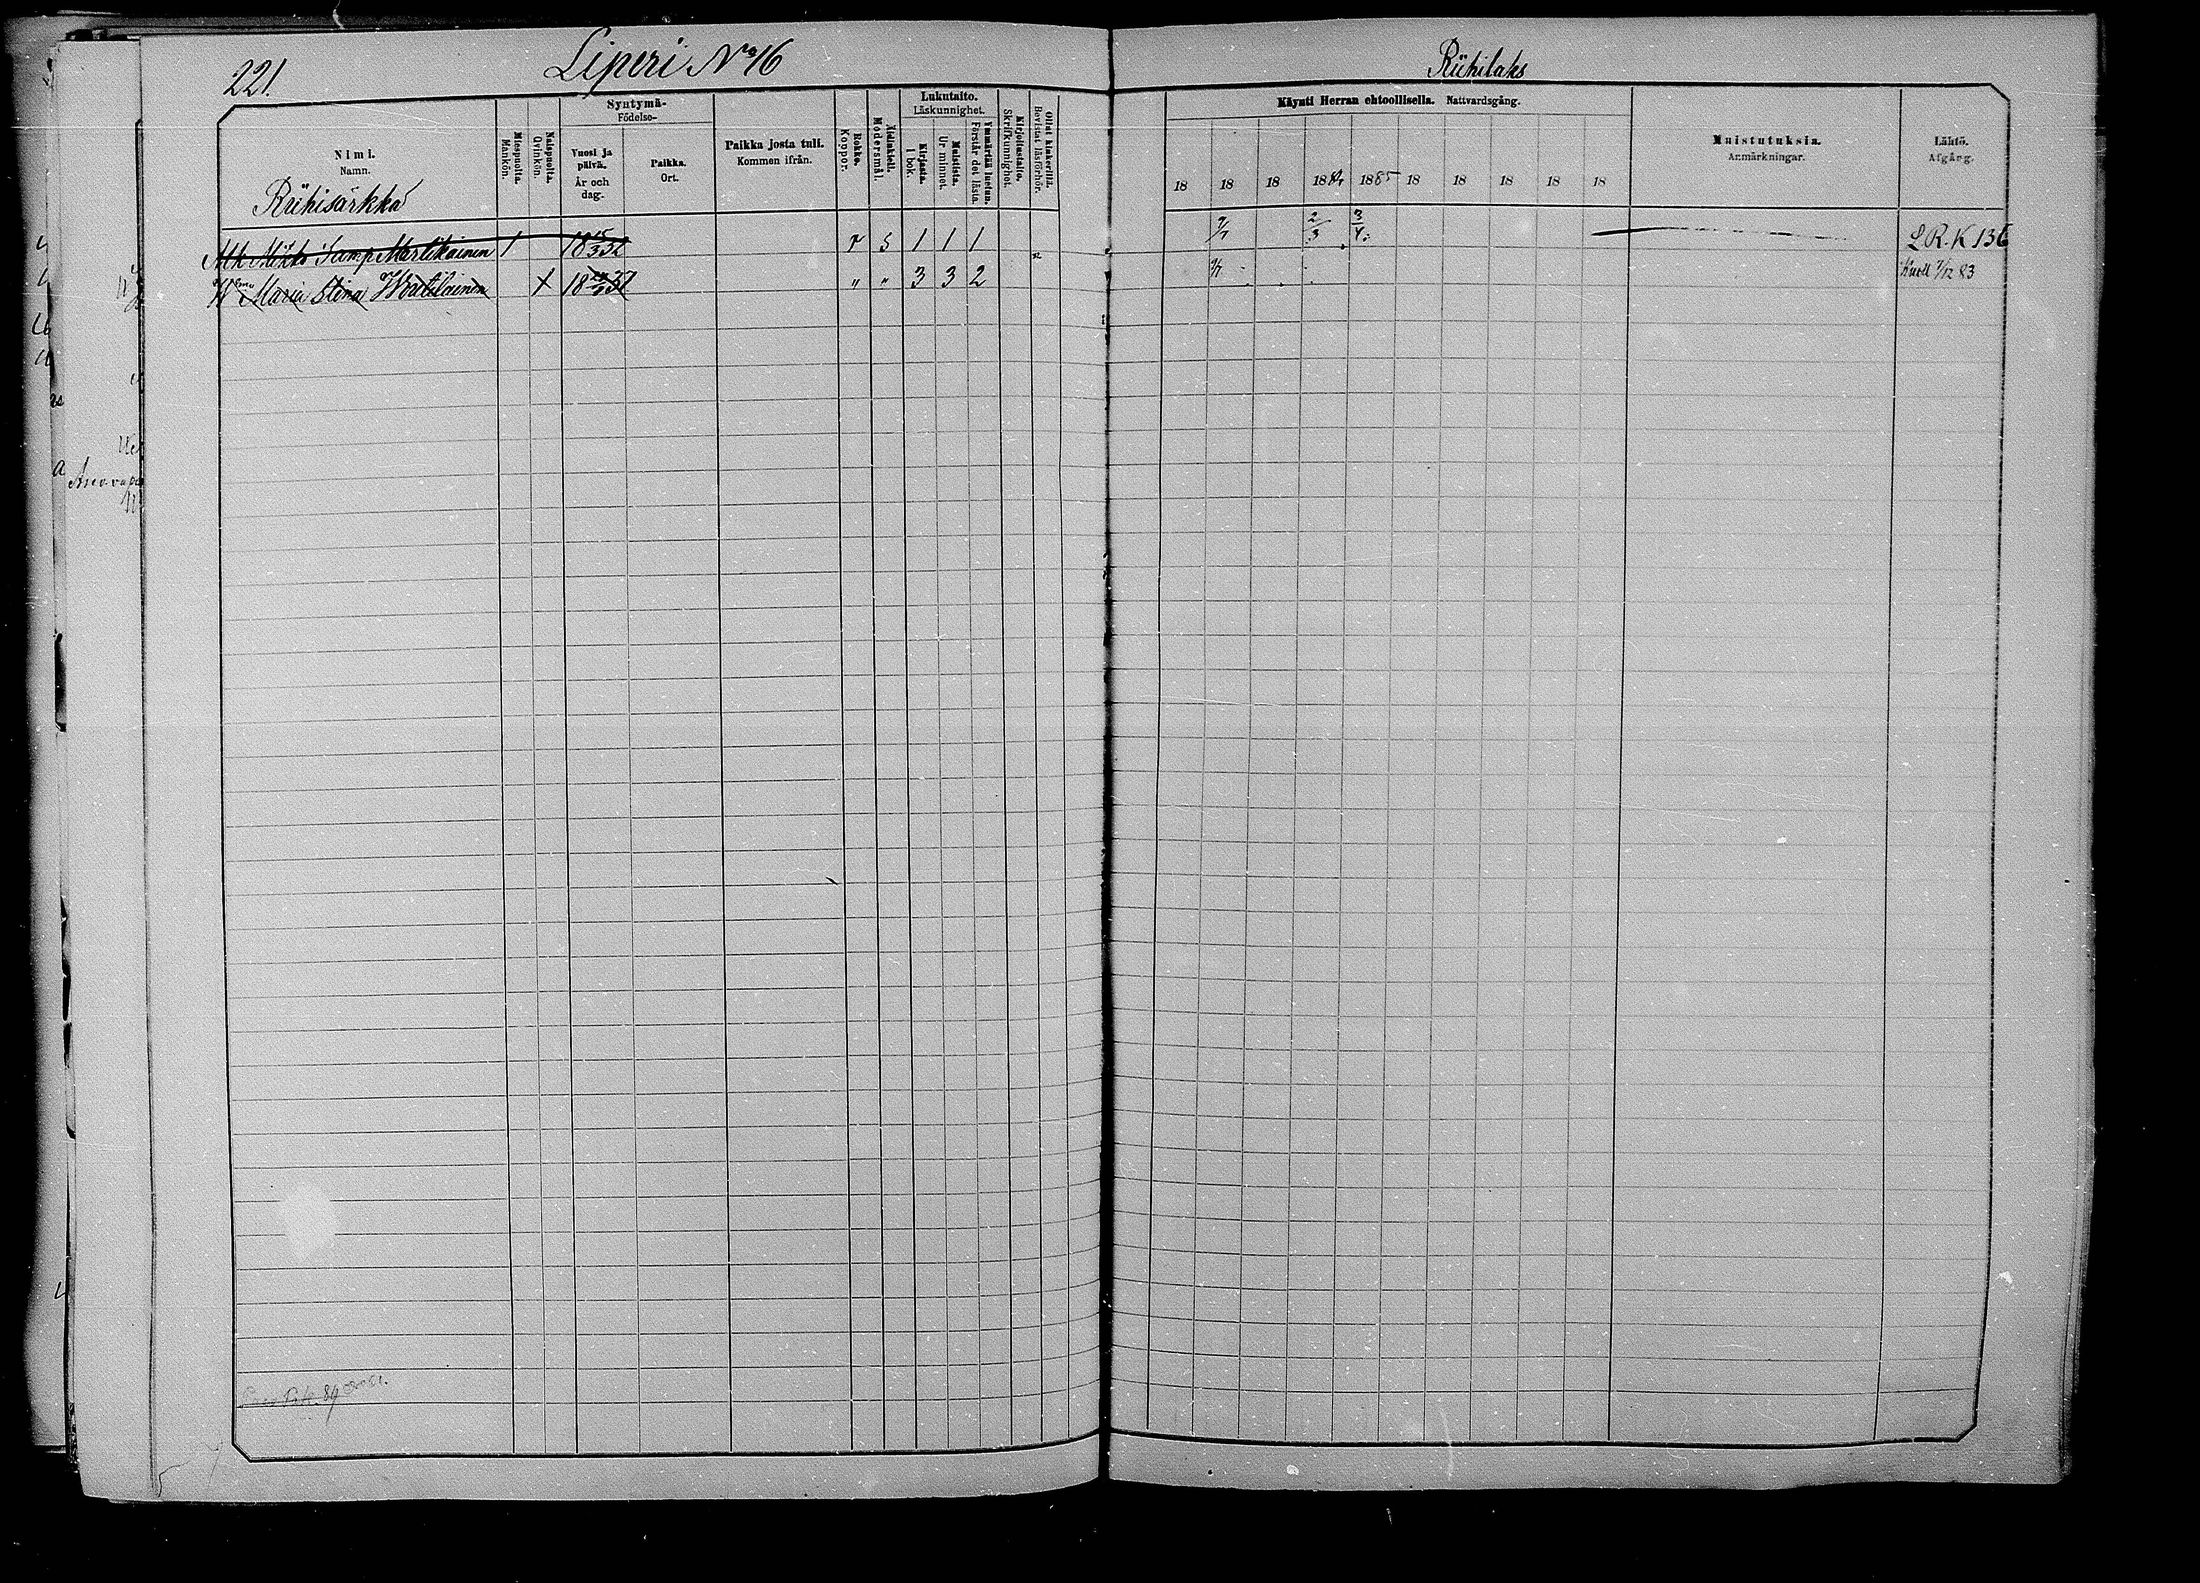 221.
Liperi No 16
Riihilaks
Nimi.
Namn.
Riihisärkkä
Miespuolta.
Mankön.
Naispuolta.
Qvinkön.
Syntymä-
Födelse-
Vuosi ja
päivä.
År och
dag.
Paikka.
Ort.
Paikka josta tuli.
Kommen ifrån.
Rokko.
Koppor.
Äidinkieli.
Modersmål.
Lukutaito.
Läskunnighet.
Kirjasta.
I bok.
Muistista.
Ur minnet.
Ymmärtää luetun.
Förstår det lästa.
Kirjoitustaito.
Skrifkunnighet.
Ollut kinkerillä.
Bevistat läsförhör.
Käynti Herran ehtoollisella. Nattvardsgång.
18 18 18 1884 1885 18 18 18 18 18
Muistutuksia.
Anmärkningar.
Lähtö.
Afgång.
Mikko Samp. Martikainen 1 18 15/3 32 r S 1 1 1 9/7 2/3 3/4 L R. K 136
Maria Stina Woutilainen 18 37 " " 3 3 2 9/7 Kuoll 7/12 83